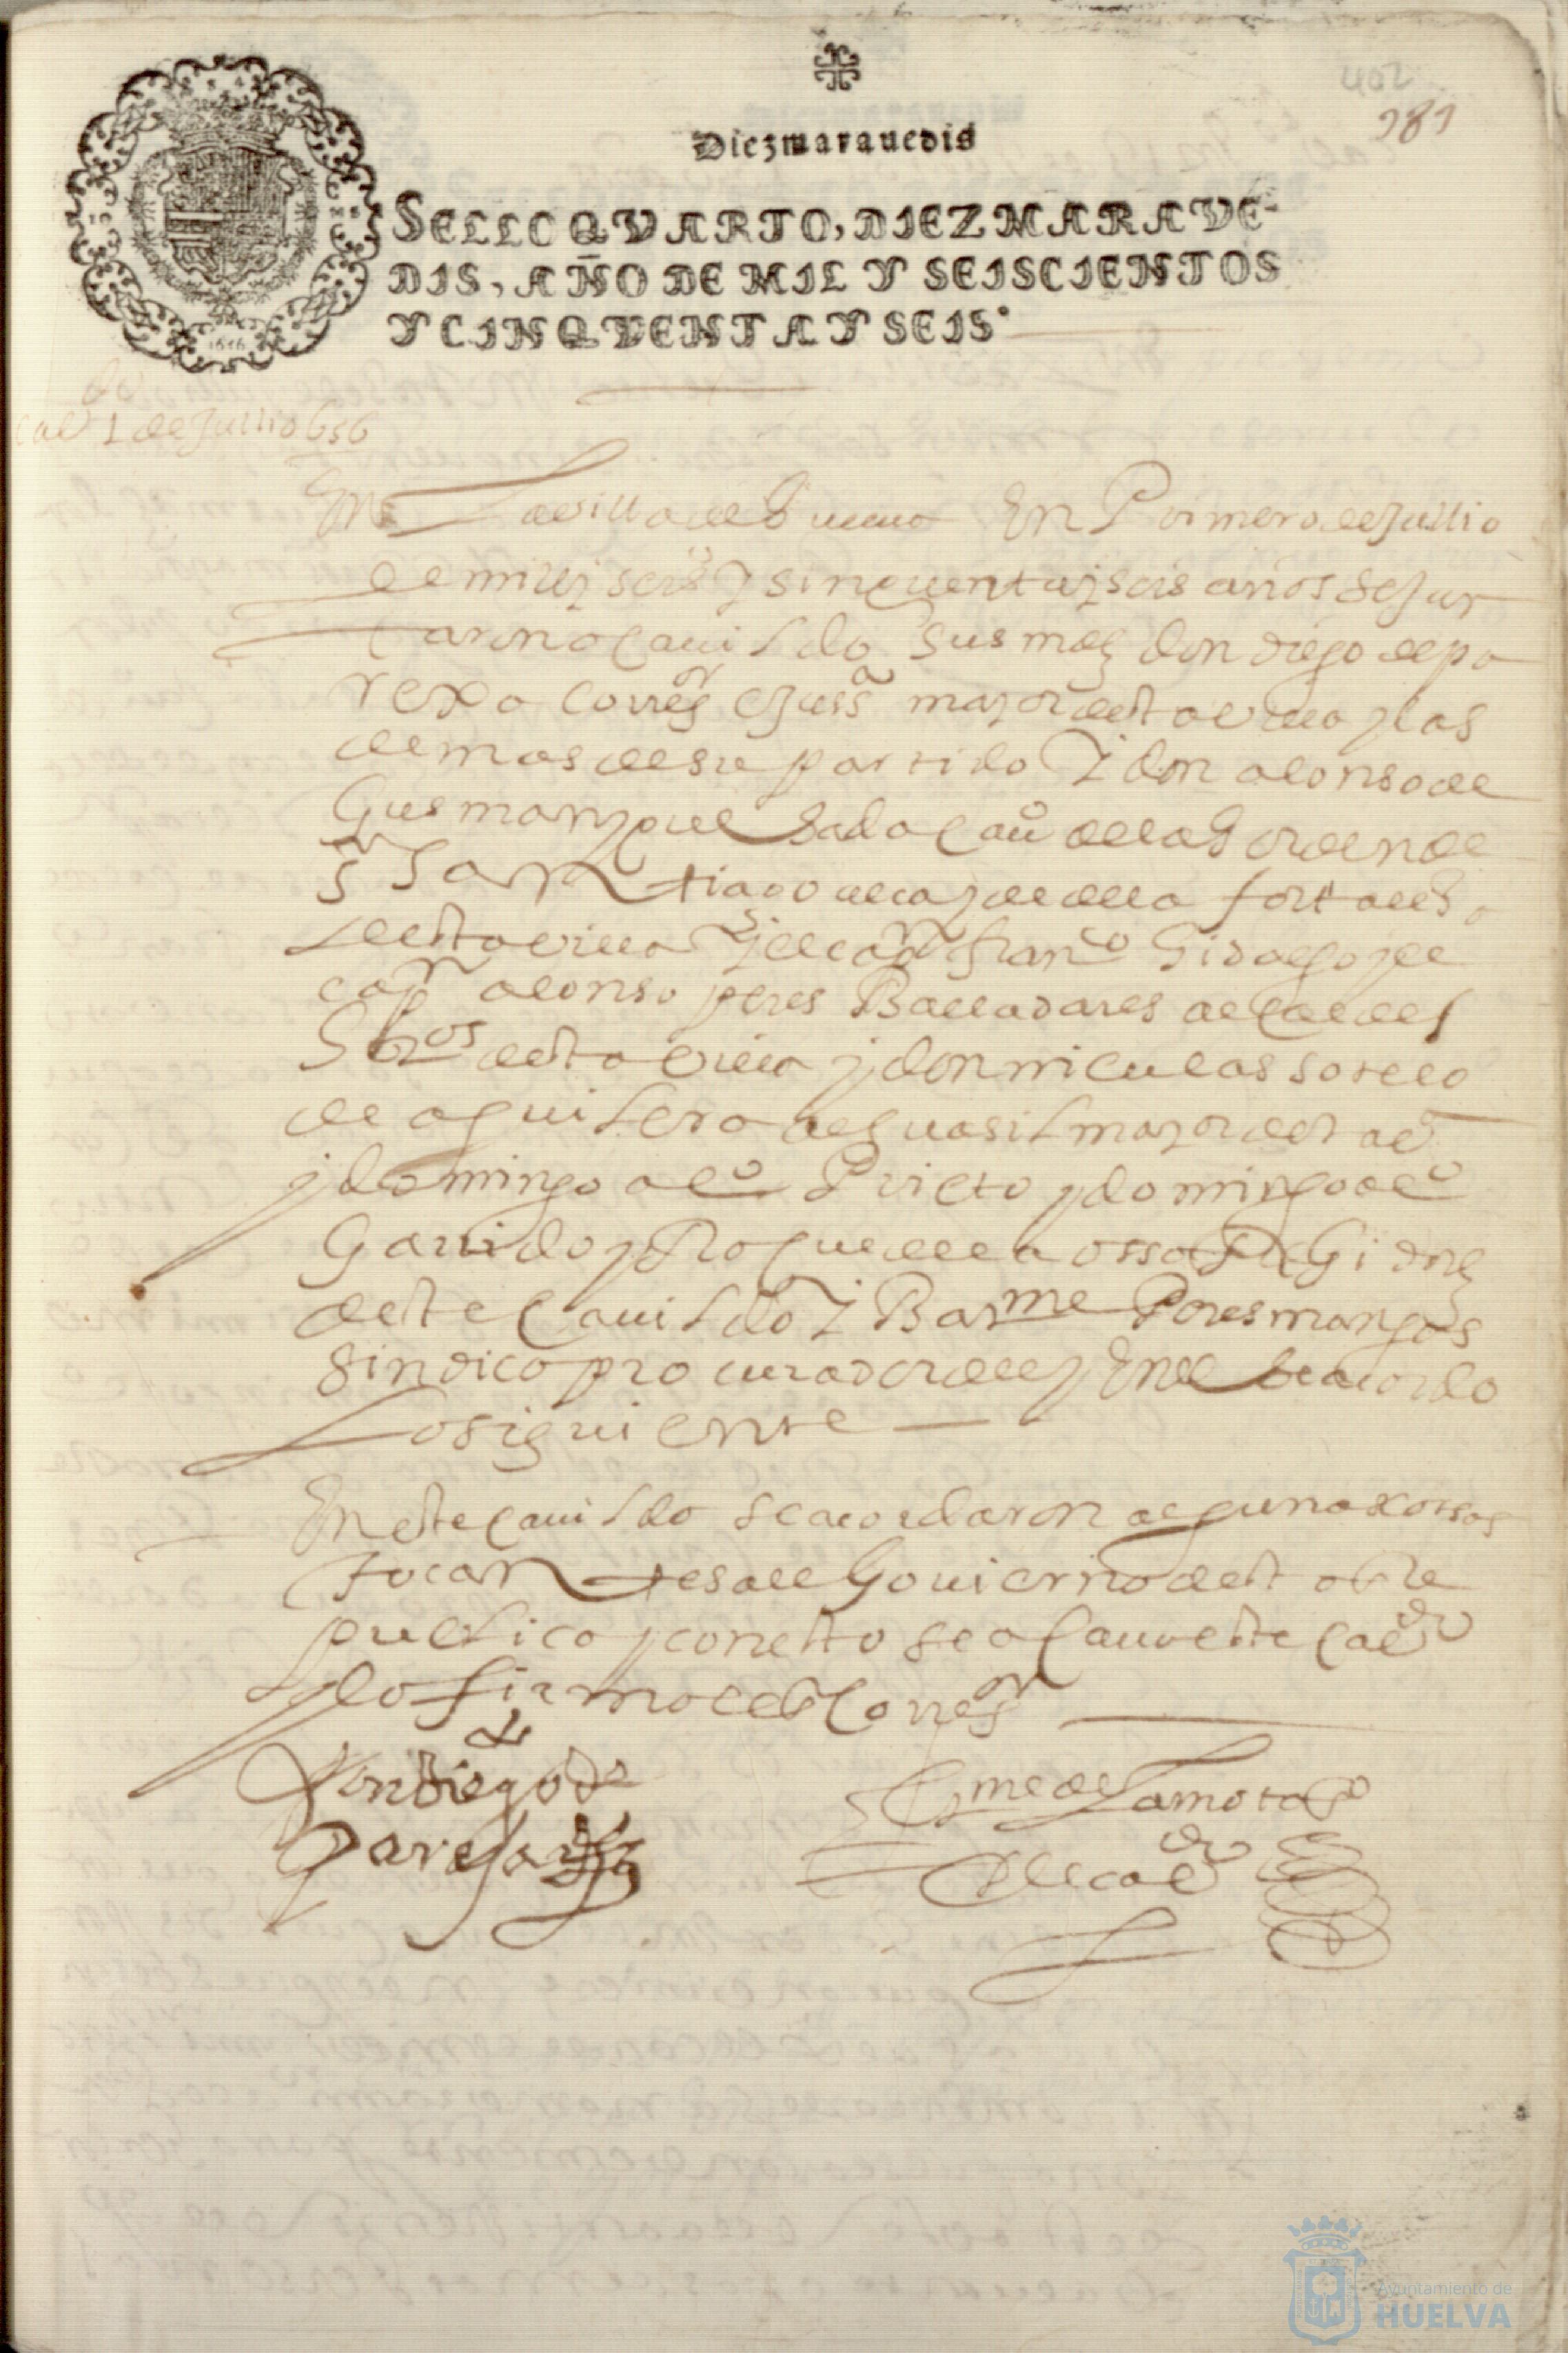 402
181
Diez marauedis
SELLO QVARTO, DIEZ MARAVE-
DIS, AÑO DE MIL Y SEISCIENTOS
Y CINQVENTA Y SEIS.
1656
cabº 1 de Jullio 656
En La villa de Guelua En Primero de Jullio
de mill y seisº y sinquenta y seis años se Jun
taron a Cauildo sus mdz don diego de pa
rexa correor e Jussa mayor desta villa y las
demas de su partido y don alonso de
Gusman y quesada Cauº de la orden de
sr San tiago alcayde de la fortalesa
desta villa y el capn franco Hidalgo y el
capn alonso peres Balladares alcaldes
hornos desta villa y don niculas sotelo
de aguilera alguasil mayor desta vª
y domingo alº Prieto y domingo alº
Garrido y Roque de la ossa Regidores
deste Cauildo y Barme Peres mangas
sindico procurador del y En el se acordo
Lo siguiente
En este Cauildo se acordaron algunas cossas
tocantes al Gouierno desta Re
publica y con esto se acauo este cabdo
y lo firmo el sr Correor
Don Diego de
Pareja
Bme de La mota esno
de cabdo
Ayuntamiento de
HUELVA